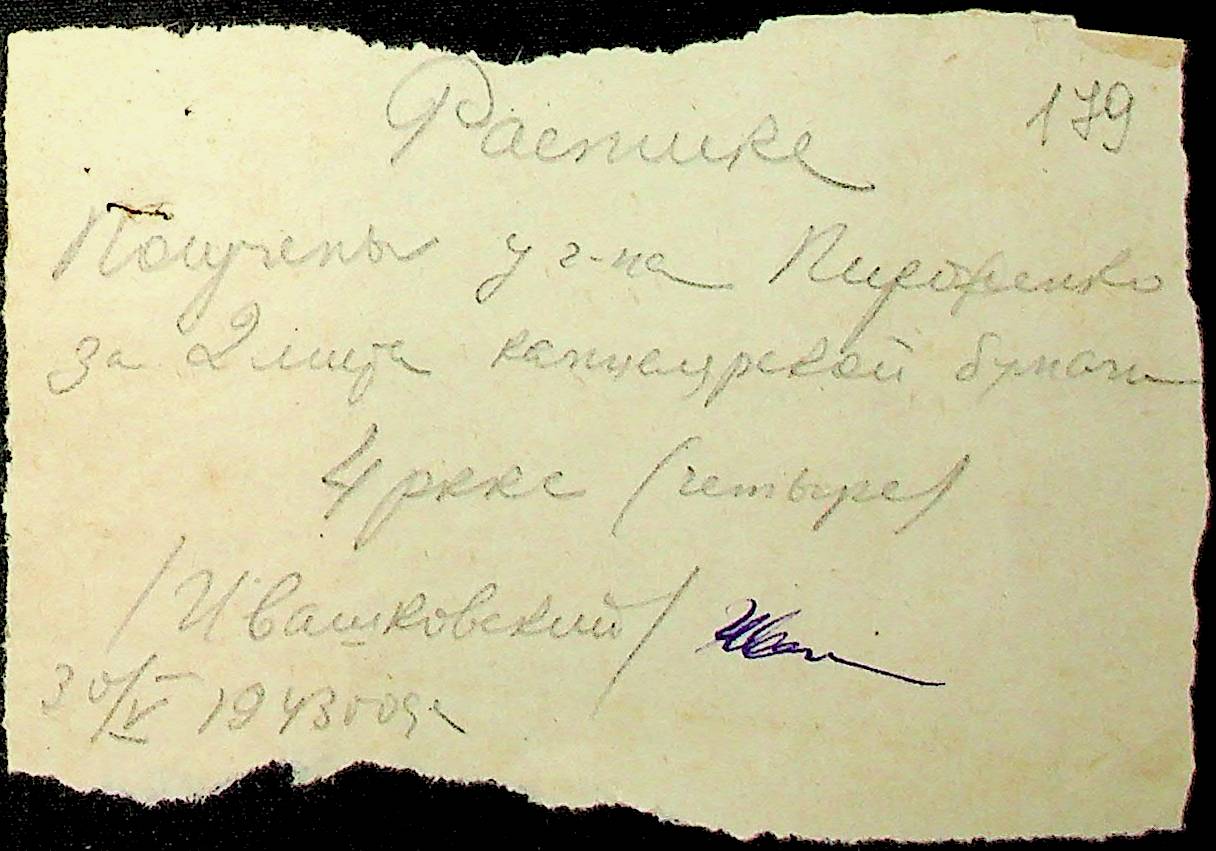 179
Расписка
Получены у г-на Пироженко
за 2 листа канцелярской бумаги
4 рккс (четыре)
/Ивашковский/ Иваш
30/V 1943 года